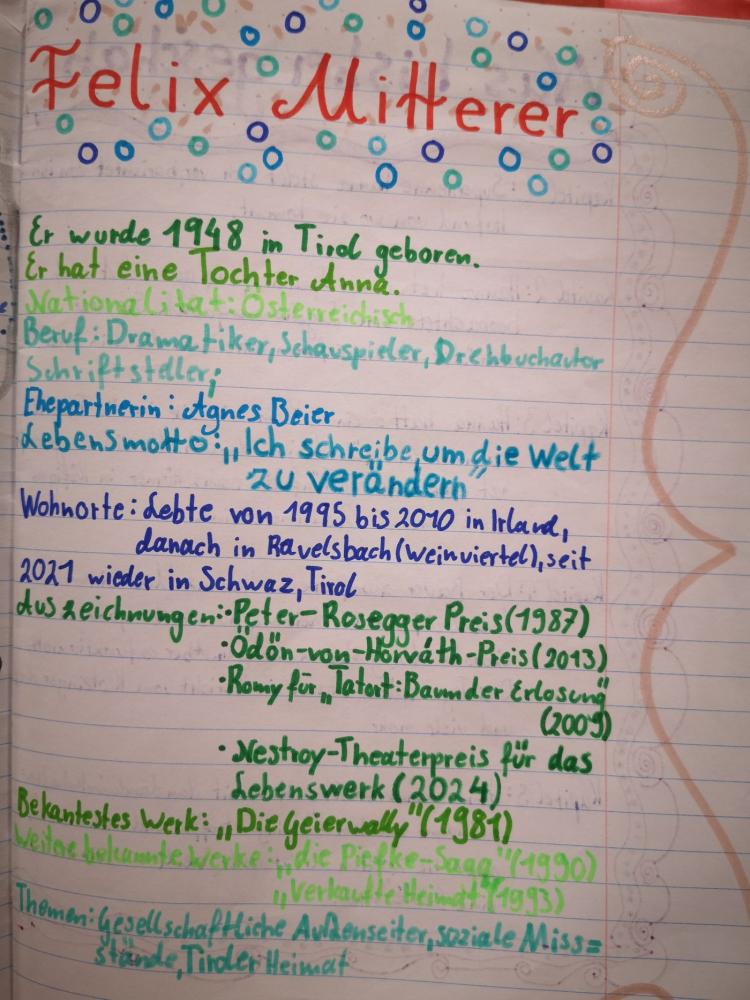 Felix Mitterer
Er wurde 1948 in Tirol geboren.
Er hat eine Tochter Anna.
Nationalität: Österreichisch
Beruf: Dramatiker, Schauspieler, Drehbuchautor
Schriftsteller;
Ehepartnerin: Agnes Beier
Lebensmotto: „Ich schreibe, um die Welt
zu verändern"
Wohnorte: Lebte von 1995 bis 2010 in Irland,
danach in Ravelsbach (Weinviertel), seit
2021 wieder in Schwaz, Tirol
Auszeichnungen: • Peter-Rosegger Preis (1987)
• Ödön-von-Horváth-Preis (2013)
• Romy für „Tatort: Baum der Erlosung"
(2009)
• Nestroy-Theaterpreis für das
Lebenswerk (2024)
Bekantestes Werk: „Die Geierwally" (1981)
Weitere bekannte Werke: „die Piefke-Saga" (1990)
„Verkaufte Heimat" (1993)
Themen: Gesellschaftliche Außenseiter, soziale Miss=
stände, Tiroler Heimat